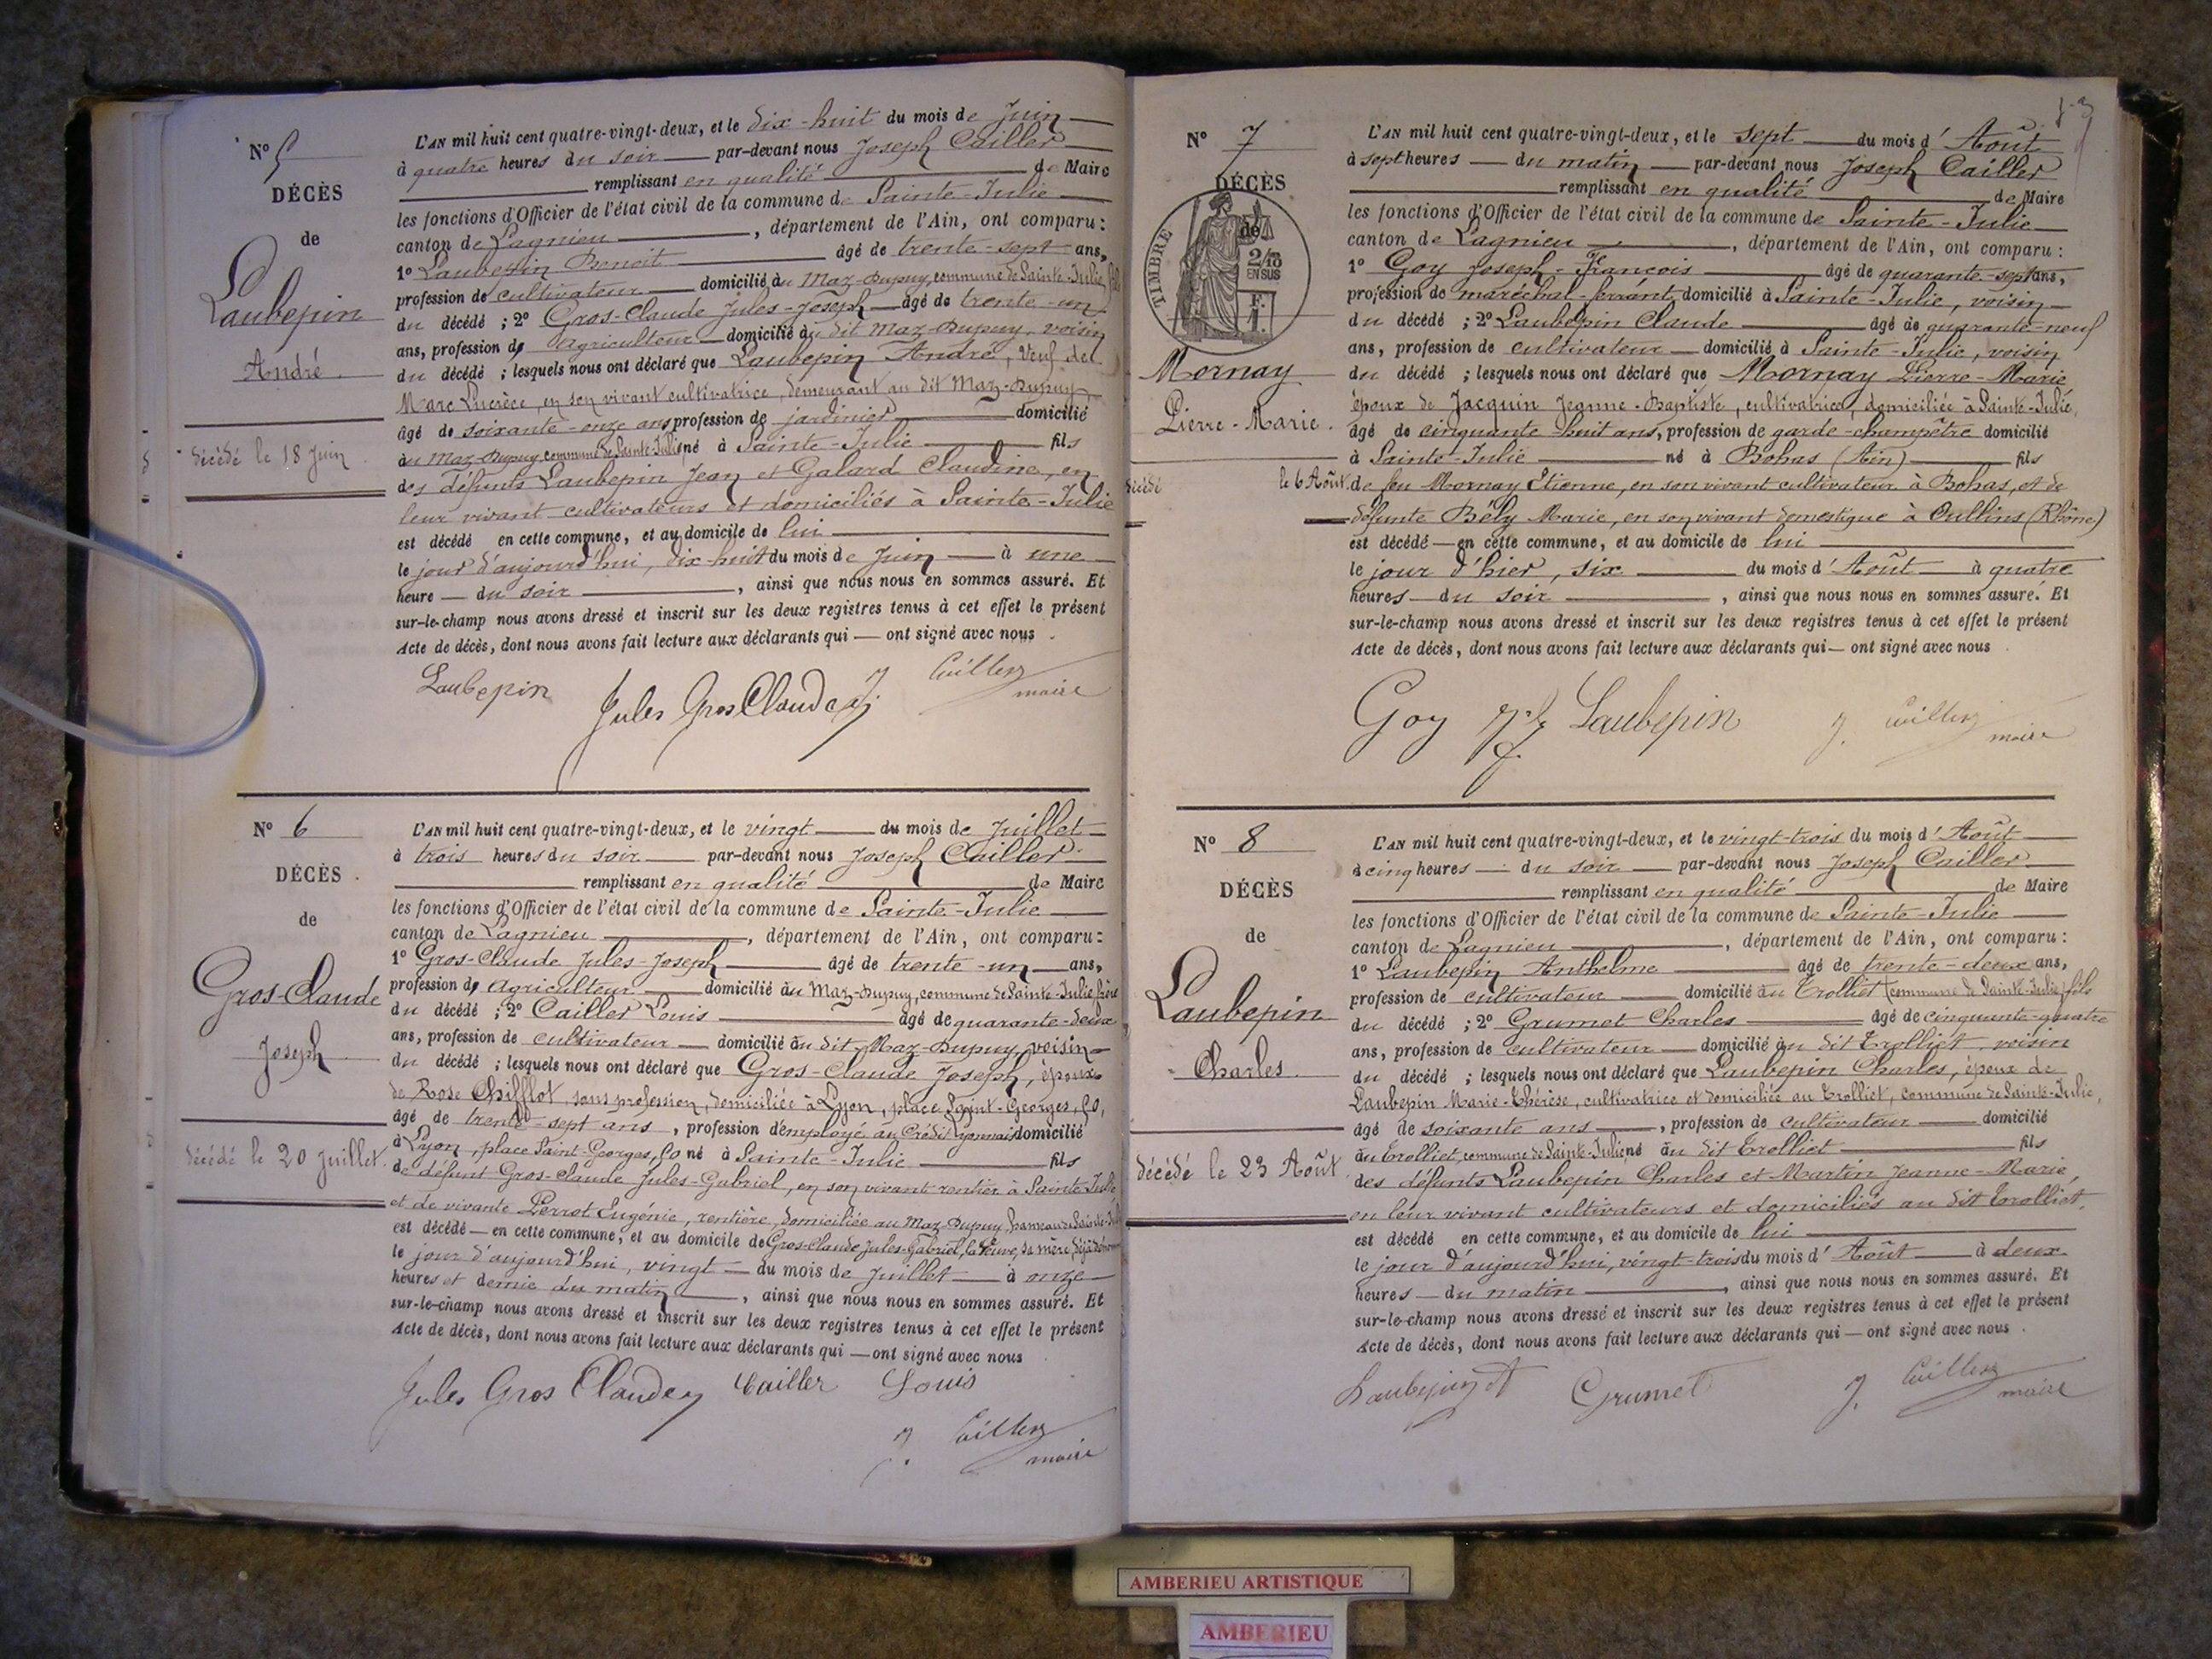 N° 5
DÉCÈS
de
Laubepin
André
décédé le 18 Juin
L'AN mil huit cent quatre-vingt-deux, et le dix-huit du mois de Juin
à quatre heures du soir par-devant nous Joseph Cailler
remplissant en qualité de Maire
les fonctions d'Officier de l'état civil de la commune de Sainte-Julie
canton de Lagnieu, département de l'Ain, ont comparu:
1° Laubepin Benoit âgé de trente-sept ans,
profession de cultivateur domicilié au Maz-Dupuy, commune de Sainte-Julie
du décédé; 2° Gros-Claude Jules-Joseph âgé de trente-un
ans, profession de agriculteur domicilié au dit Maz-Dupuy, voisin
du décédé; lesquels nous ont déclaré que Laubepin André, veuf de
Marc Lucrèce, en son vivant cultivatrice, demeurant au dit Maz-Dupuy,
âgé de soixante-onze ans profession de jardinier domicilié
au Maz-Dupuy, commune de Sainte-Julie né à Sainte-Julie fils
des défunts Laubepin Jean et Galard Claudine, en
leur vivant cultivateurs et domiciliés à Sainte-Julie
est décédé en cette commune, et au domicile de lui
le jour d'aujourd'hui, dix-huit du mois de Juin à une
heure du soir, ainsi que nous nous en sommes assuré. Et
sur-le-champ nous avons dressé et inscrit sur les deux registres tenus à cet effet le présent
Acte de décès, dont nous avons fait lecture aux déclarants qui ont signé avec nous.
Laubepin Jules Gros Claude J. Cailler
maire
N° 6
DÉCÈS
de
Gros-Claude
Joseph
décédé le 20 Juillet
L'AN mil huit cent quatre-vingt-deux, et le vingt du mois de Juillet
à trois heures du soir par-devant nous Joseph Cailler
remplissant en qualité de Maire
les fonctions d'Officier de l'état civil de la commune de Sainte-Julie
canton de Lagnieu, département de l'Ain, ont comparu:
1° Gros-Claude Jules-Joseph âgé de trente-un ans,
profession de agriculteur domicilié au Maz-Dupuy, commune de Sainte-Julie, frère
du décédé; 2° Cailler Louis âgé de quarante-deux
ans, profession de cultivateur domicilié au dit Maz-Dupuy, voisin
du décédé; lesquels nous ont déclaré que Gros-Claude Joseph, époux
de Rose Chifflot, sans profession, domiciliée à Lyon, place Saint-Georges,
âgé de trente-sept ans, profession d'employé au Crédit Lyonnais domicilié
à Lyon, place Saint-Georges, né à Sainte-Julie fils
de défunt Gros-Claude Jules-Gabriel, en son vivant rentier à Sainte-Julie
et de vivante Perrot Eugénie, rentière, domiciliée au Maz-Dupuy, hameau de Sainte-Julie
est décédé en cette commune, et au domicile de Gros-Claude Jules-Gabriel, la veuve, sa mère, déjà
le jour d'aujourd'hui, vingt du mois de Juillet à onze
heures et demie du matin, ainsi que nous nous en sommes assuré. Et
sur-le-champ nous avons dressé et inscrit sur les deux registres tenus à cet effet le présent
Acte de décès, dont nous avons fait lecture aux déclarants qui ont signé avec nous
Jules Gros Claude Cailler Louis
J. Cailler
maire
N° 7
DÉCÈS
de
TIMBRE
2/10
EN SUS
F.
1.
Mornay
Pierre-Marie.
décédé le 6 Août
L'AN mil huit cent quatre-vingt-deux, et le sept du mois d'Août
à sept heures du matin par-devant nous Joseph Cailler
remplissant en qualité de Maire
les fonctions d'Officier de l'état civil de la commune de Sainte-Julie
canton de Lagnieu, département de l'Ain, ont comparu:
1° Goy Joseph-François âgé de quarante-sept ans,
profession de maréchal-ferrant, domicilié à Sainte-Julie, voisin
du décédé; 2° Laubepin Claude âgé de quarante-neuf
ans, profession de cultivateur domicilié à Sainte-Julie, voisin
du décédé; lesquels nous ont déclaré que Mornay Pierre-Marie
époux de Jacquin Jeanne-Baptiste, cultivatrice, domiciliée à Sainte-Julie,
âgé de cinquante-huit ans, profession de garde-champêtre domicilié
à Sainte-Julie né à Bohas (Ain) fils
de feu Mornay Etienne, en son vivant cultivateur à Bohas, et de
défunte Bély Marie, en son vivant domestique à Oullins (Rhône)
est décédé en cette commune, et au domicile de lui
le jour d'hier, six du mois d'Août à quatre
heures du soir, ainsi que nous nous en sommes assuré. Et
sur-le-champ nous avons dressé et inscrit sur les deux registres tenus à cet effet le présent
Acte de décès, dont nous avons fait lecture aux déclarants qui ont signé avec nous.
Goy Laubepin J. Cailler
maire
N° 8
DÉCÈS
de
Laubepin
Charles.
décédé le 23 Août
L'AN mil huit cent quatre-vingt-deux, et le vingt-trois du mois d'Août
à cinq heures du soir par-devant nous Joseph Cailler
remplissant en qualité de Maire
les fonctions d'Officier de l'état civil de la commune de Sainte-Julie
canton de Lagnieu, département de l'Ain, ont comparu:
1° Laubepin Anthelme âgé de trente-deux ans,
profession de cultivateur domicilié au Trolliet (commune de Sainte-Julie) fils
du décédé; 2° Grumet Charles âgé de cinquante-quatre
ans, profession de cultivateur domicilié au dit Trolliet, voisin
du décédé; lesquels nous ont déclaré que Laubepin Charles, époux de
Laubepin Marie-Thérèse, cultivatrice et domiciliée au Trolliet, commune de Sainte-Julie,
âgé de soixante ans, profession de cultivateur domicilié
au Trolliet, commune de Sainte-Julie né au dit Trolliet fils
des défunts Laubepin Charles et Martin Jeanne-Marie,
en leur vivant cultivateurs et domiciliés au dit Trolliet,
est décédé en cette commune, et au domicile de lui
le jour d'aujourd'hui, vingt-trois du mois d'Août à deux
heures du matin, ainsi que nous nous en sommes assuré. Et
sur-le-champ nous avons dressé et inscrit sur les deux registres tenus à cet effet le présent
Acte de décès, dont nous avons fait lecture aux déclarants qui ont signé avec nous.
Laubepin A Grumet J. Cailler
maire
AMBERIEU ARTISTIQUE
AMBERIEU